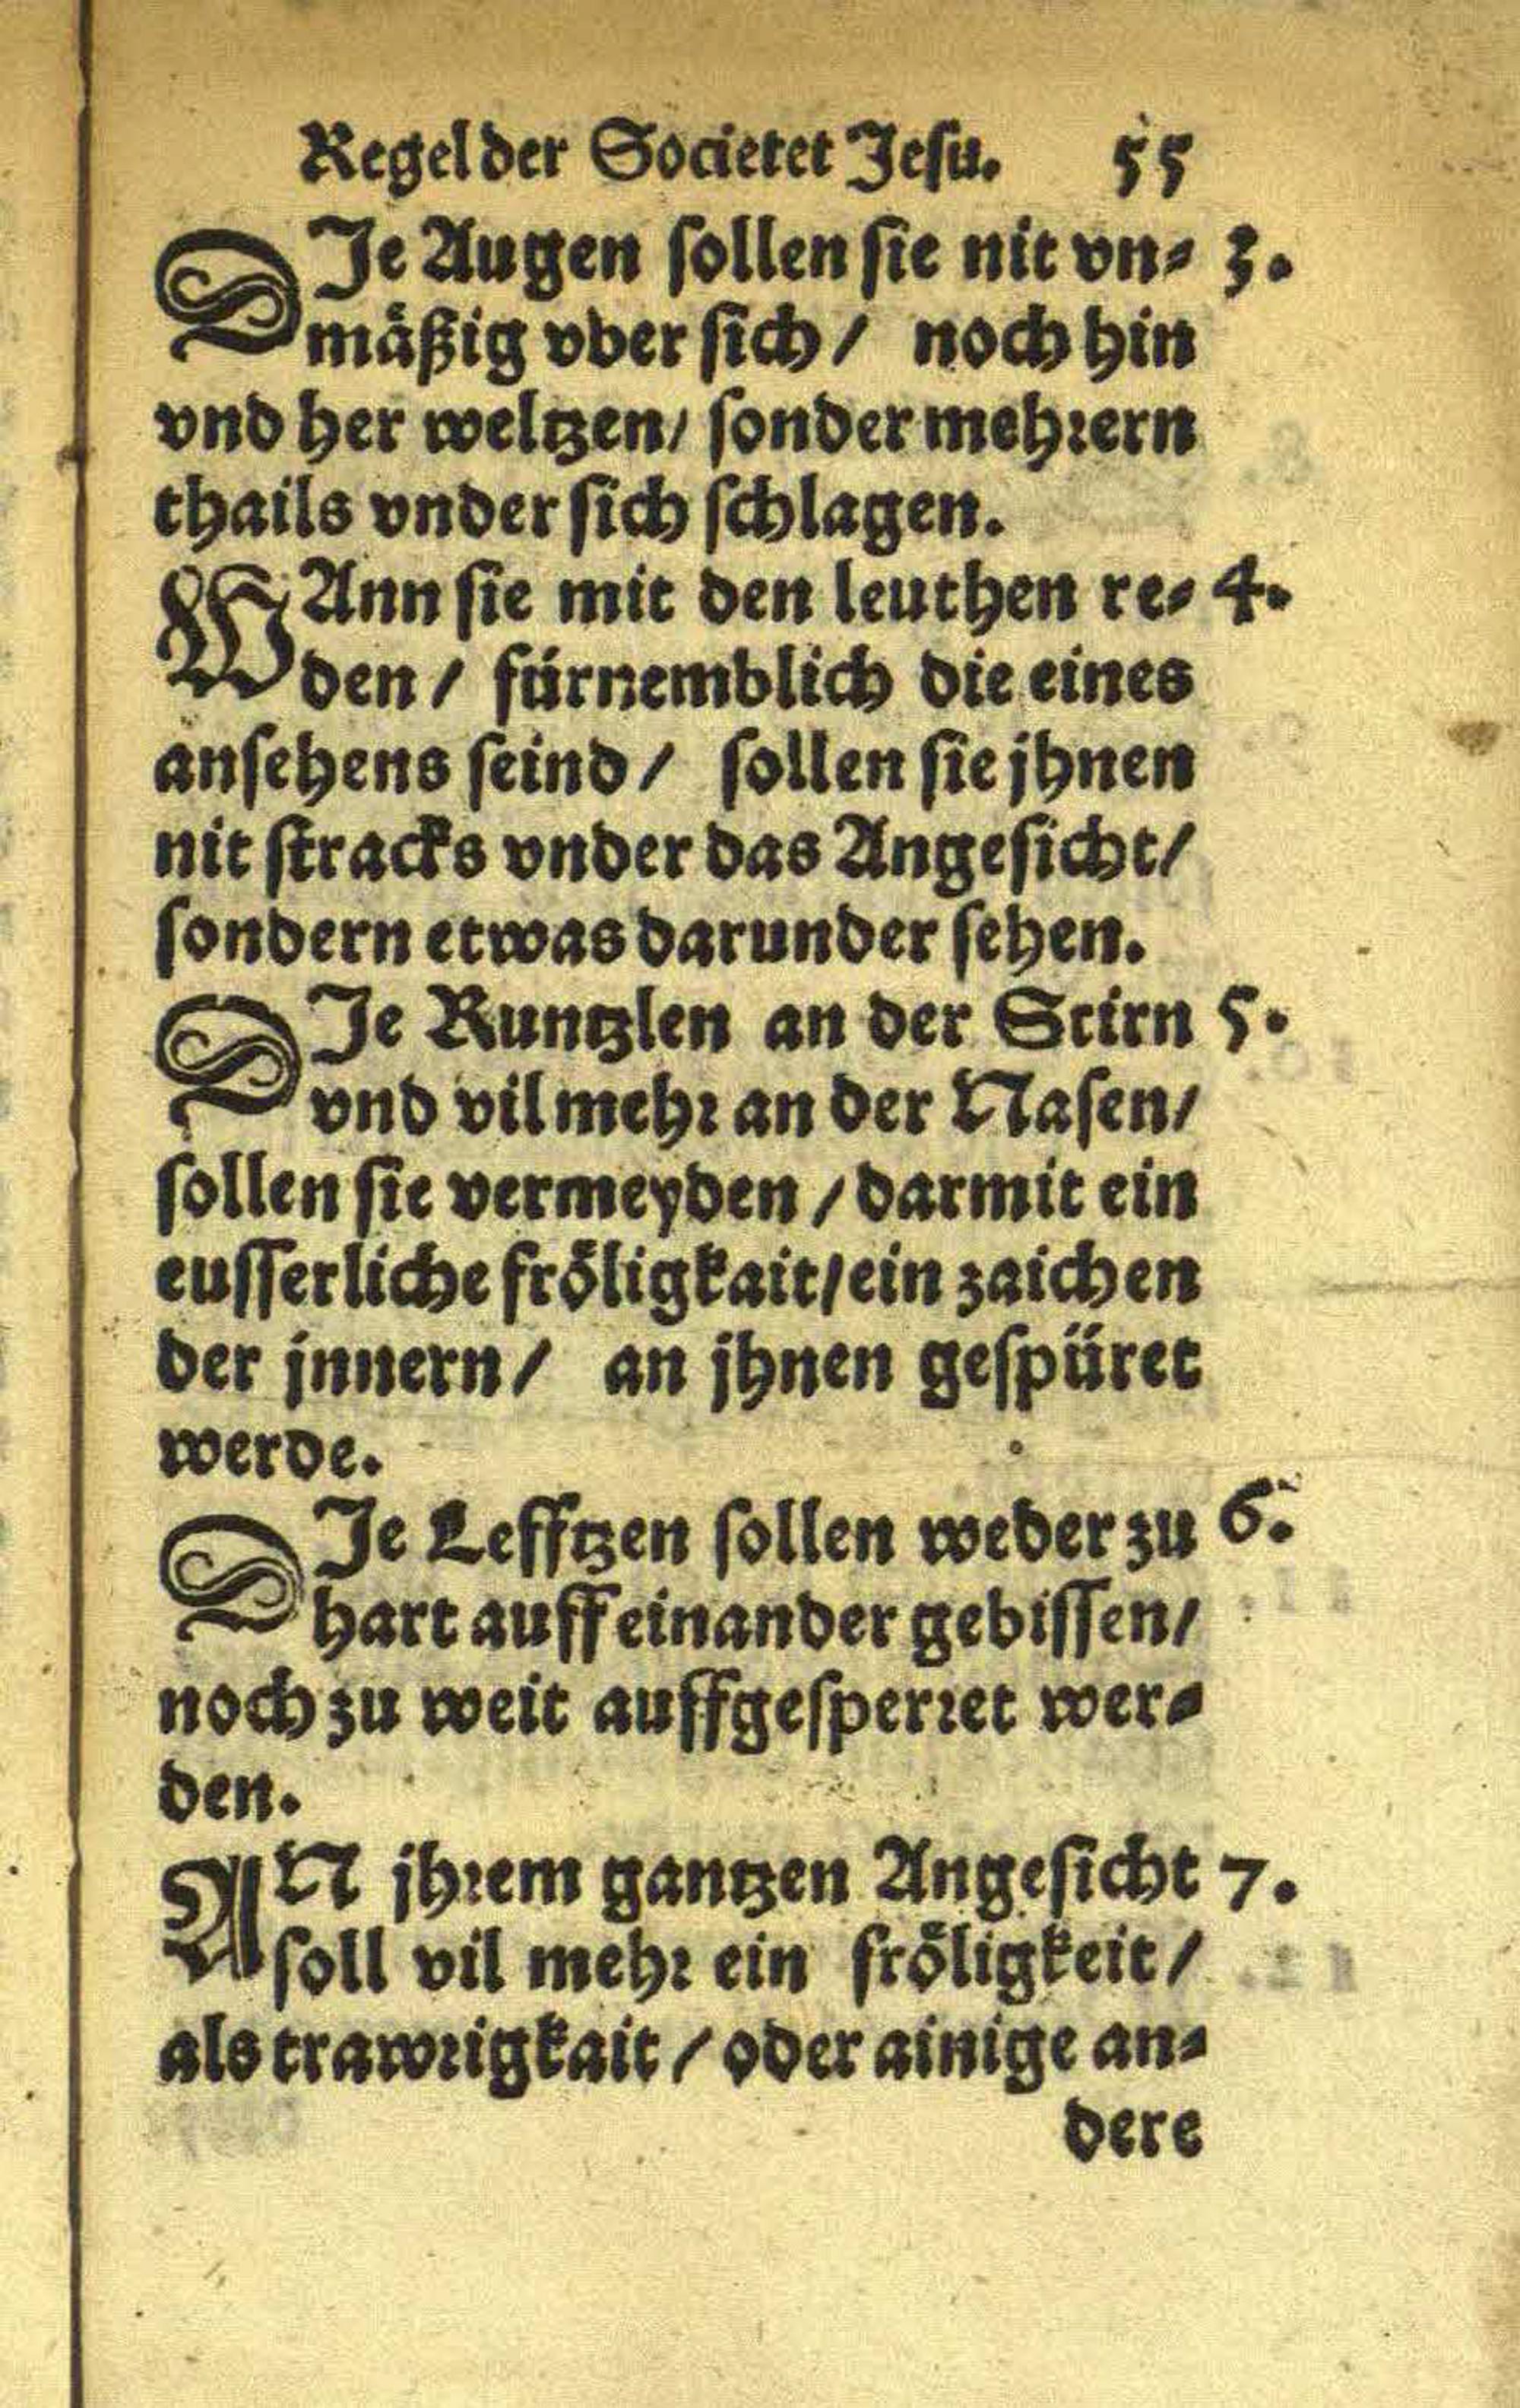 Regel der Societet Jesu. 55
DIe Augen sollen sie nit vn⸗ 3.
mäßig vber sich / noch hin
vnd her weltzen / sonder mehrern
thails vnder sich schlagen.
WAnn sie mit den leuthen re⸗ 4.
den / fürnemblich die eines
ansehens seind / sollen sie jhnen
nit stracks vnder das Angesicht /
sondern etwas darunder sehen.
DIe Runtzlen an der Stirn 5.
vnd vil mehr an der Nasen /
sollen sie vermeyden / darmit ein
eusserliche fröligkait / ein zaichen
der jnnern / an jhnen gespüret
werde.
DIe Lefftzen sollen weder zu 6.
hart auff einander gebissen /
noch zu weit auffgesperret wer⸗
den.
AN jhrem gantzen Angesicht 7.
soll vil mehr ein fröligkeit /
als trawrigkait / oder ainige an⸗
dere